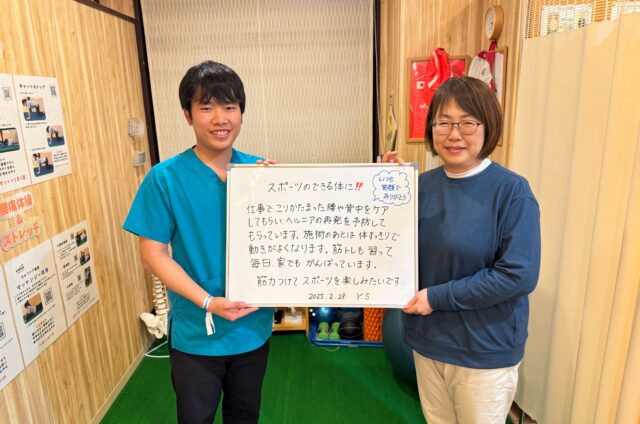 スポーツのできる体に!!
いつも
笑顔で
ありがとう
仕事でこりかたまった腰や背中をケア
してもらい ヘルニアの再発を予防して
もらっています。施術のあとは 体すっきりで
動きがよくなります。筋トレも 習って
毎日 家でも がんばっています。
筋力つけて スポーツを楽しみたいです。
2025.2.28 Y.S
キャット&ドッグ
腰痛体操
&
ストレッチ
マッケンジー体操